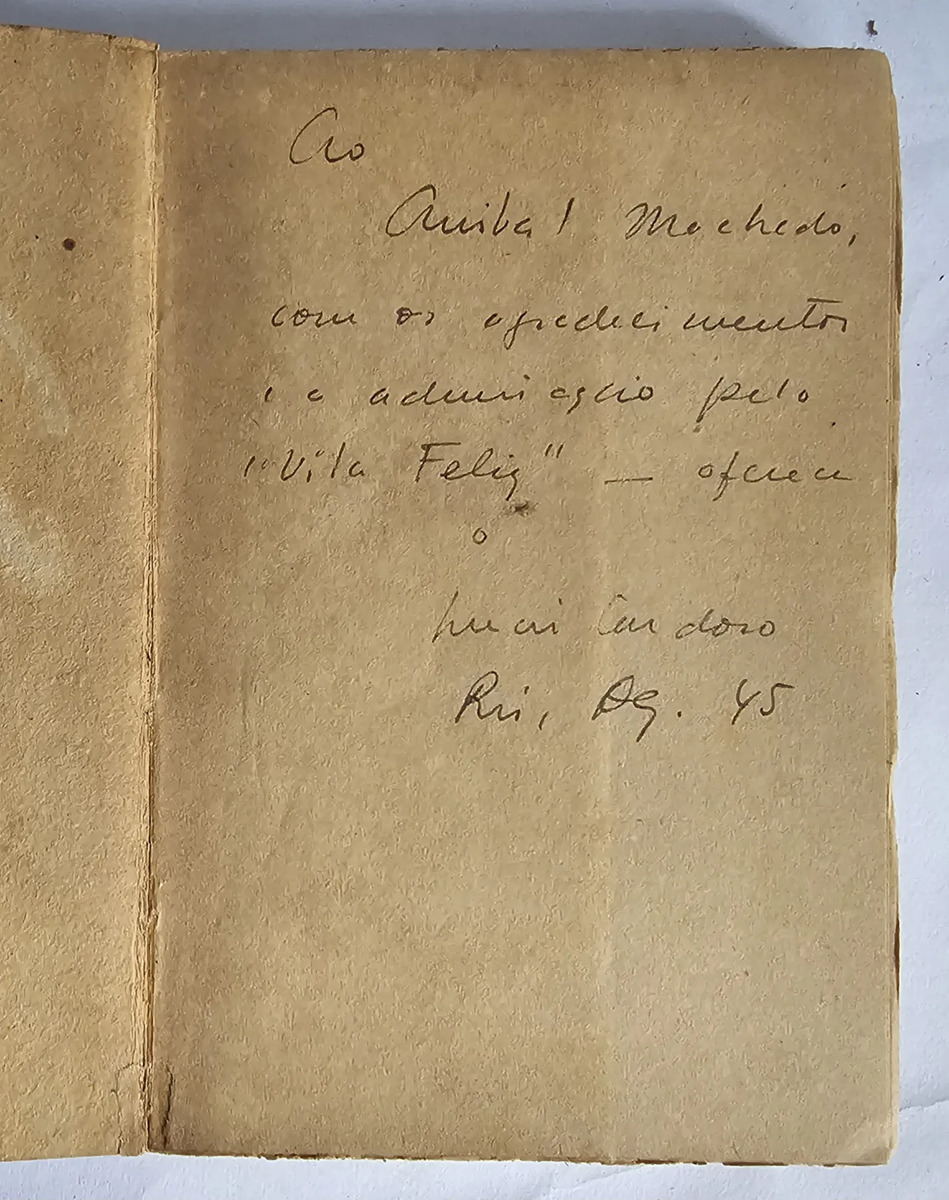 Ao
Anibal Machado,
com os agradecimentos
e a admiração pelo
"Vila Feliz" — oferece
o
Lucio Cardoso
Rio, Ag. 45